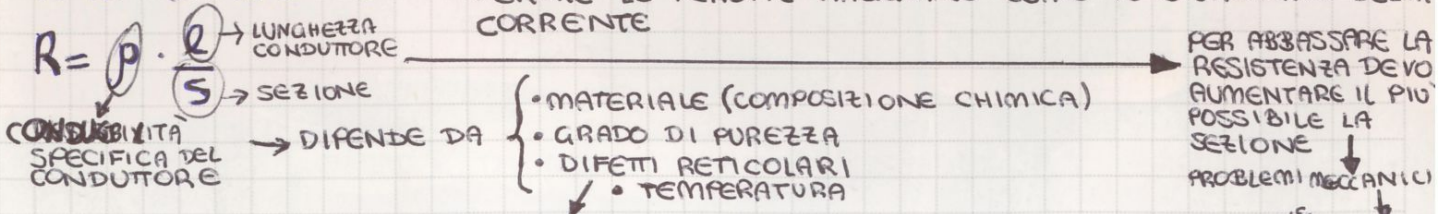 CORRENTE
R = ρ · l/S
→ LUNGHEZZA
CONDUTTORE
→ SEZIONE
SPECIFICA DEL
CONDUTTORE
→ DIPENDE DA
• MATERIALE (COMPOSIZIONE CHIMICA)
• GRADO DI PUREZZA
• DIFETTI RETICOLARI
• TEMPERATURA
PER ABBASSARE LA
RESISTENZA DEVO
AUMENTARE IL PIÙ
POSSIBILE LA
SEZIONE
PROBLEMI MECCANICI